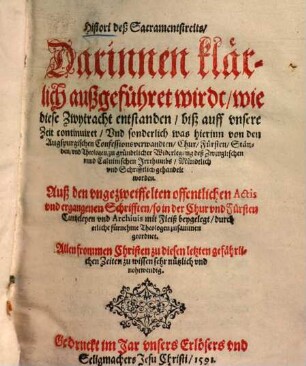 Histori deß Sacramentstreits/
Darinnen klär-
lich außgeführet wirdt/ wie
diese Zwytracht entstanden/ biß auff vnsere
Zeit continuiret/ Vnd sonderlich was hierinn von den
Augspurgischen Confessions verwandten/ Chur/ Fürsten/ Stän-
den/ vnd Theologen zu gründtlicher Widerlegung deß Zwinglischen
vnnd Caluinischen Irrthumbs/ Mündtlich
vnd Schrifftlich gehandelt
worden.
Auß den vngezweiffelten offentlichen Actis
vnd ergangenen Schrifften/ so in der Chur vnd Fürsten
Cantzleyen vnd Archiuis mit Fleiß beygelegt/ durch
etliche fürneme Theologen zusammen
geordnet.
Allen frommen Christen zu diesen letzten gefährli-
chen Zeiten zu wissen sehr nützlich vnd
nohtwendig.
Gedruckt im Jar vnsers Erlösers vnd
Seligmachers Jesu Christi/ 1591.